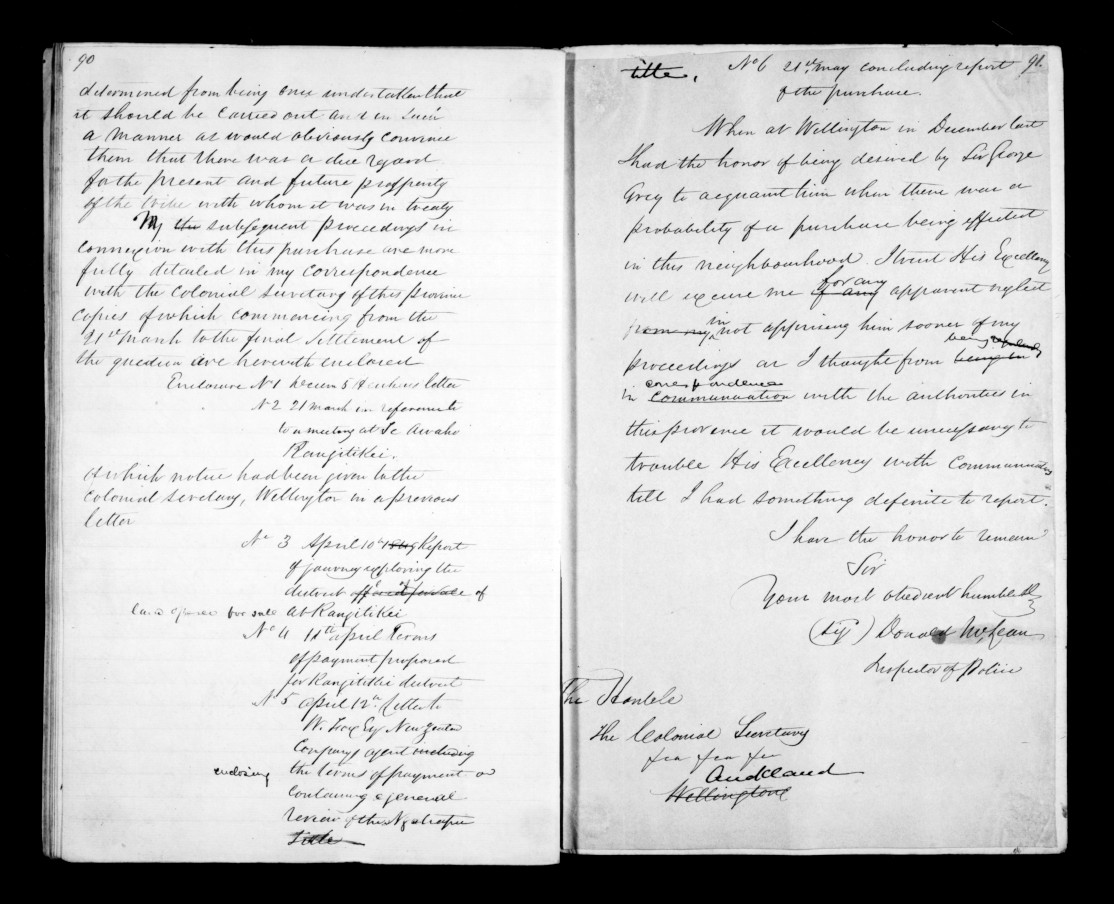 90
determined from being once undertaken that
it should be carried out and in such
a manner as would obviously convince
them that there was a due regard
for the present and future prosperity
of the tribe with whom it was in treaty
My the subsequent proceedings in
connexion with this purchase are more
fully detailed in my correspondence
with the Colonial Secretary of this province
Copies of which commencing from the
21st March to the final settlement of
the question are herewith enclosed
Enclosure No 1 letter
No 2 21 march in reference to
to a meeting at Te Awaho
Rangitikei.
of which notice had been given to the
Colonial Secretary, Wellington in a previous
letter
No 3 April 10th 1849 Report
of journey exploring the
district offered for sale of
land for sale at Rangitikei
No 4 11th April Terms
of payment proposed
for Rangitikei district
No 5 April 12th Letter to
W. Fox Esq New Zealand
Company's agent including
enclosing the terms of payment and
containing a general
review of the Ngatiapa
title
title, No 6 21st May concluding report 91.
of the purchase.
When at Wellington in December last
I had the honor of being desired by Sir George
Grey to acquaint him when there was a
probability of a purchase being effected
in this neighbourhood. I trust His Excellency
for any
will excuse me if any apparent neglect
in
from my not apprising him sooner of my
being
proceedings as I thought from being in
correspondence
in communication with the authorities in
this province it would be unnecessary to
trouble His Excellency with communications
till I had something definite to report.
I have the honor to remain
Sir
Your most obedient humble
(Sig) Donald McLean
Inspector of Police
The Honble
The Colonial Secretary
Auckland
Wellington